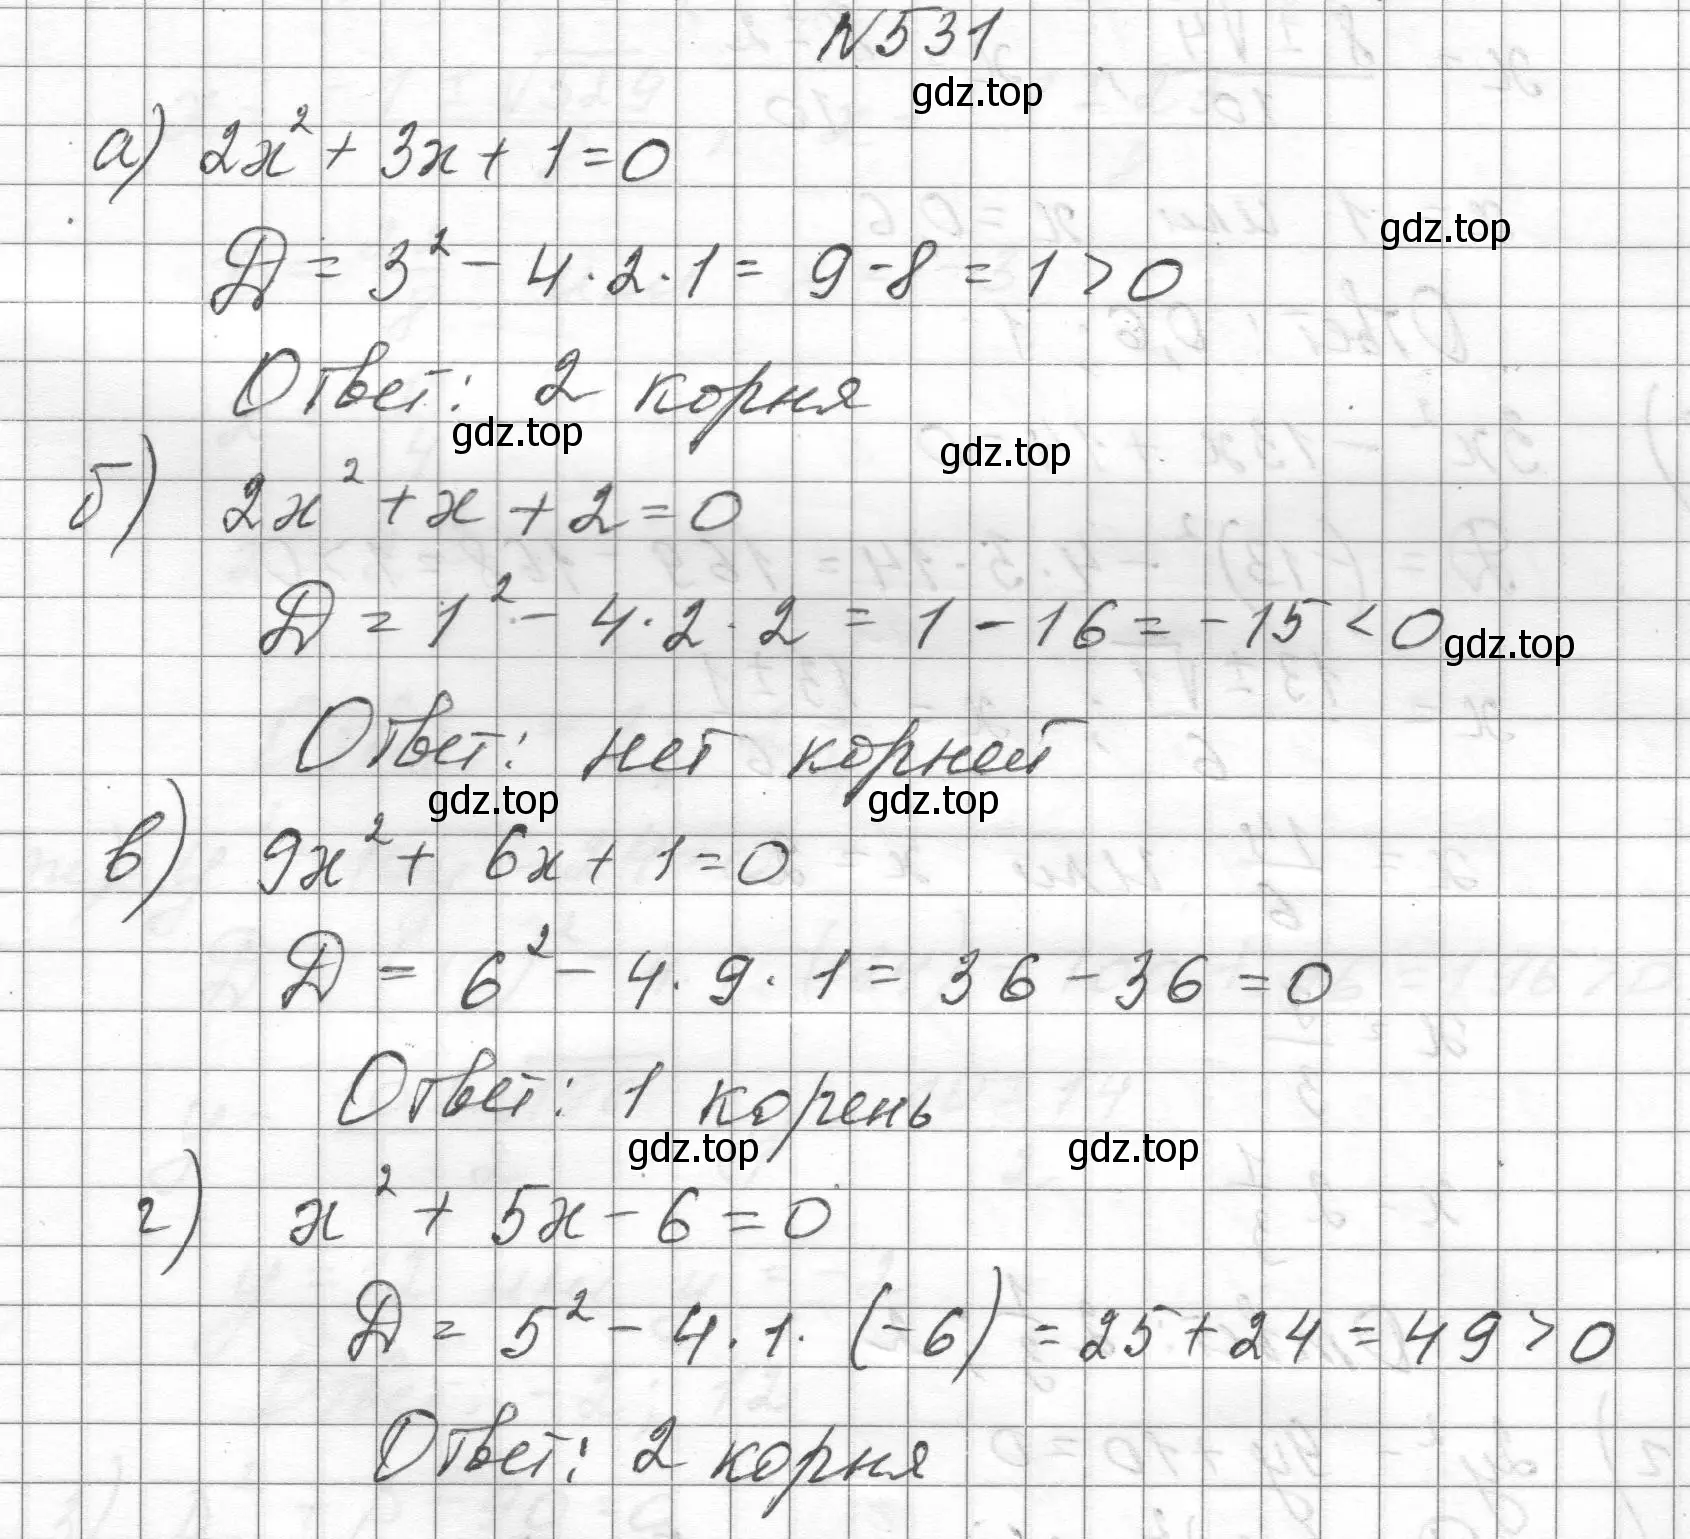 N531
gdz.top
а) 2x² + 3x + 1 = 0
gdz.top
Д = 3² - 4 · 2 · 1 = 9 - 8 = 1 > 0
Ответ: 2 корня
gdz.top
gdz.top
б) 2x² + x + 2 = 0
Д = 1² - 4 · 2 · 2 = 1 - 16 = -15 < 0
gdz.top
Ответ: нет корней
gdz.top
gdz.top
в) 9x² + 6x + 1 = 0
Д = 6² - 4 · 9 · 1 = 36 - 36 = 0
Ответ: 1 корень
gdz.top
gdz.top
г) x² + 5x - 6 = 0
Д = 5² - 4 · 1 · (-6) = 25 + 24 = 49 > 0
Ответ: 2 корня